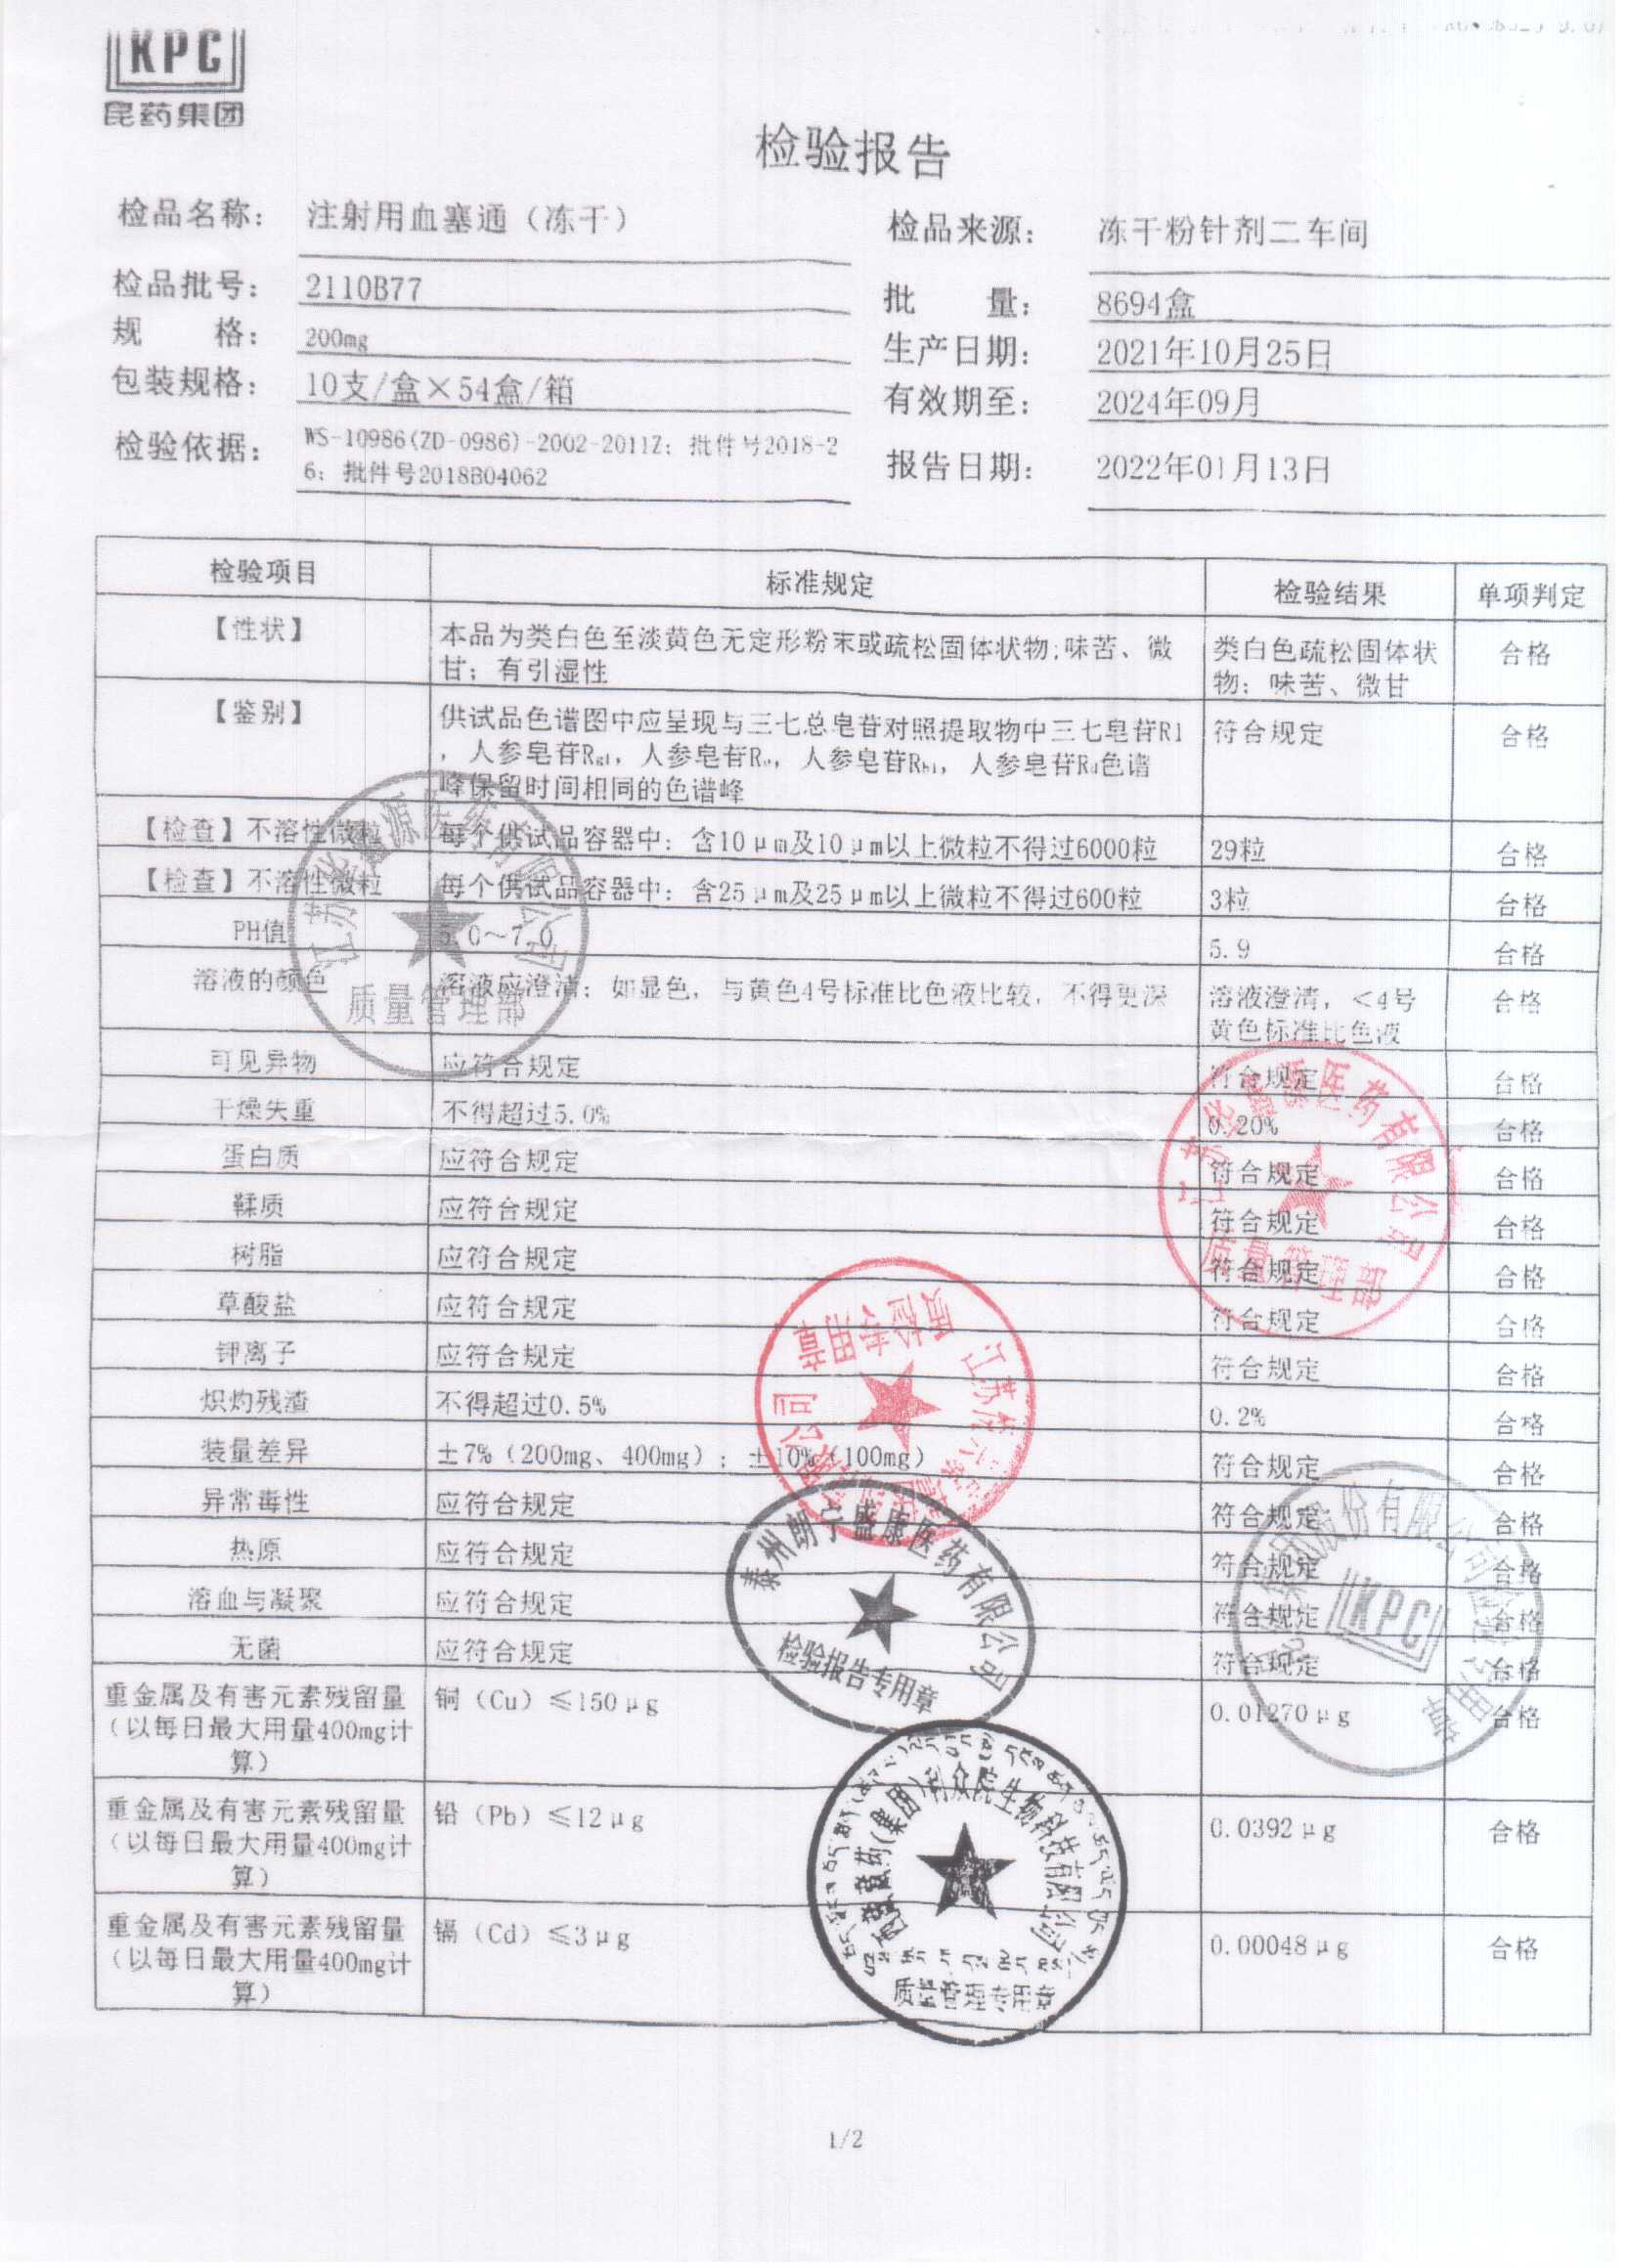 KPC
昆药集团
检验报告
检品名称： 注射用血塞通（冻干） 检品来源： 冻干粉针剂二车间
检品批号： 2110B77 批 量： 8694盒
规 格： 200mg 生产日期： 2021年10月25日
包装规格： 10支/盒×54盒/箱 有效期至： 2024年09月
检验依据： WS-10986(ZD-0986)-2002-2011Z；批件号2018-2
6；批件号2018B04062 报告日期： 2022年01月13日
检验项目 标准规定 检验结果 单项判定
【性状】 本品为类白色至淡黄色无定形粉末或疏松固体状物;味苦、微 类白色疏松固体状 合格
甘；有引湿性 物；味苦、微甘
【鉴别】 供试品色谱图中应呈现与三七总皂苷对照提取物中三七皂苷R1 符合规定 合格
，人参皂苷Rg1，人参皂苷Re，人参皂苷Rb1，人参皂苷Rd色谱
峰保留时间相同的色谱峰
【检查】不溶性微粒 每个供试品容器中：含10μm及10μm以上微粒不得过6000粒 29粒 合格
【检查】不溶性微粒 每个供试品容器中：含25μm及25μm以上微粒不得过600粒 3粒 合格
PH值 5.0～7.0 5.9 合格
溶液的颜色 溶液应澄清；如显色，与黄色4号标准比色液比较，不得更深 溶液澄清，＜4号 合格
黄色标准比色液
可见异物 应符合规定 符合规定 合格
干燥失重 不得超过5.0% 0.20% 合格
蛋白质 应符合规定 符合规定 合格
鞣质 应符合规定 符合规定 合格
树脂 应符合规定 符合规定 合格
草酸盐 应符合规定 符合规定 合格
钾离子 应符合规定 符合规定 合格
炽灼残渣 不得超过0.5% 0.2% 合格
装量差异 ±7%（200mg、400mg）；±10%（100mg） 符合规定 合格
异常毒性 应符合规定 符合规定 合格
热原 应符合规定 符合规定 合格
溶血与凝聚 应符合规定 符合规定 合格
无菌 应符合规定 符合规定 合格
重金属及有害元素残留量 铜（Cu）≤150μg 0.01270μg 合格
（以每日最大用量400mg计
算）
重金属及有害元素残留量 铅（Pb）≤12μg 0.0392μg 合格
（以每日最大用量400mg计
算）
重金属及有害元素残留量 镉（Cd）≤3μg 0.00048μg 合格
（以每日最大用量400mg计
算）
江苏华 源医药有限公司
质量管理部
江苏华 源医药有限公司
质量管理部
质检专用章
泰州朗宁盛康医药有限公司
检验报告专用章
股份有限公司
KPC
药（集团）利众院生物科技有限公司
质量管理专用章
1/2